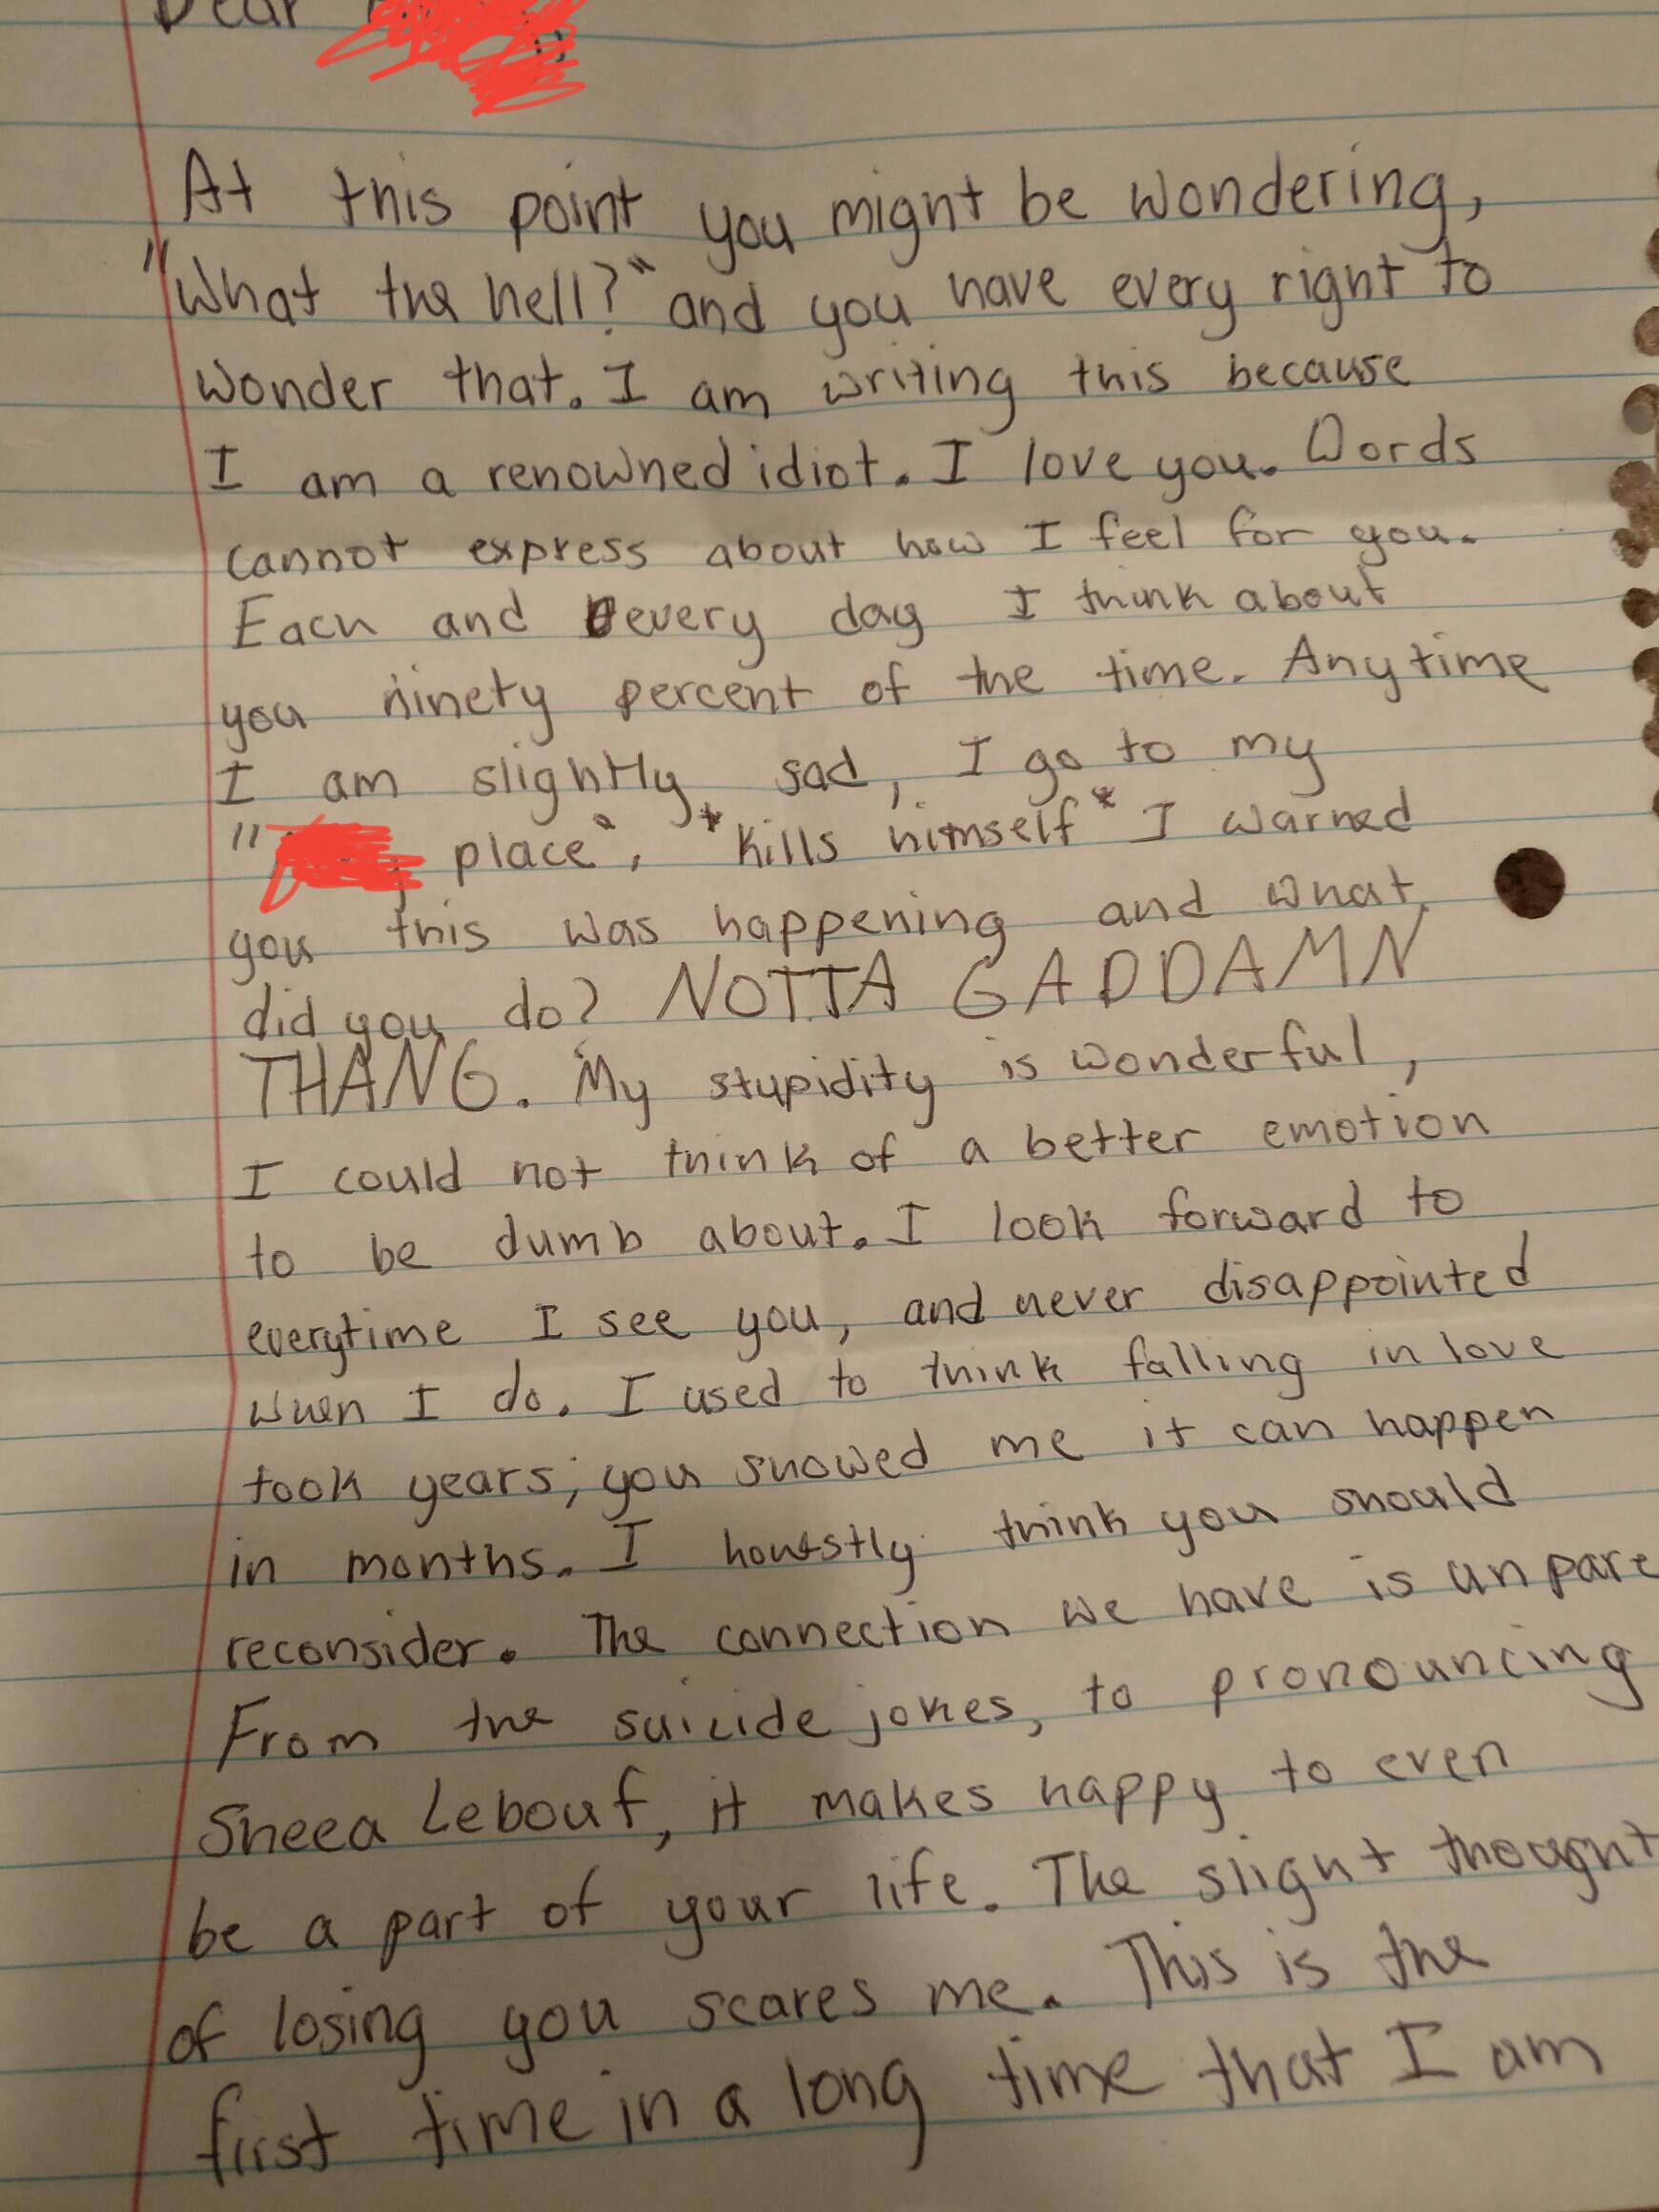 Dear
At this point you might be wondering,
"What the hell?" and you have every right to
wonder that. I am writing this because
I am a renowned idiot. I love you. Words
cannot express about how I feel for you.
Each and every day I think about
you ninety percent of the time. Anytime
I am slightly sad, I go to my
" place", *kills himself* I warned
you this was happening and what
did you do? NOTTA GADDAMN
THANG. My stupidity is wonderful,
I could not think of a better emotion
to be dumb about. I look forward to
everytime I see you, and never disappointed
when I do. I used to think falling in love
took years; you showed me it can happen
in months. I honestly think you should
reconsider. The connection we have is
From the suicide jokes, to pronouncing
Sheea Lebouf, it makes happy to even
be a part of your life. The slight thought
of losing you scares me. This is the
first time in a long time that I am